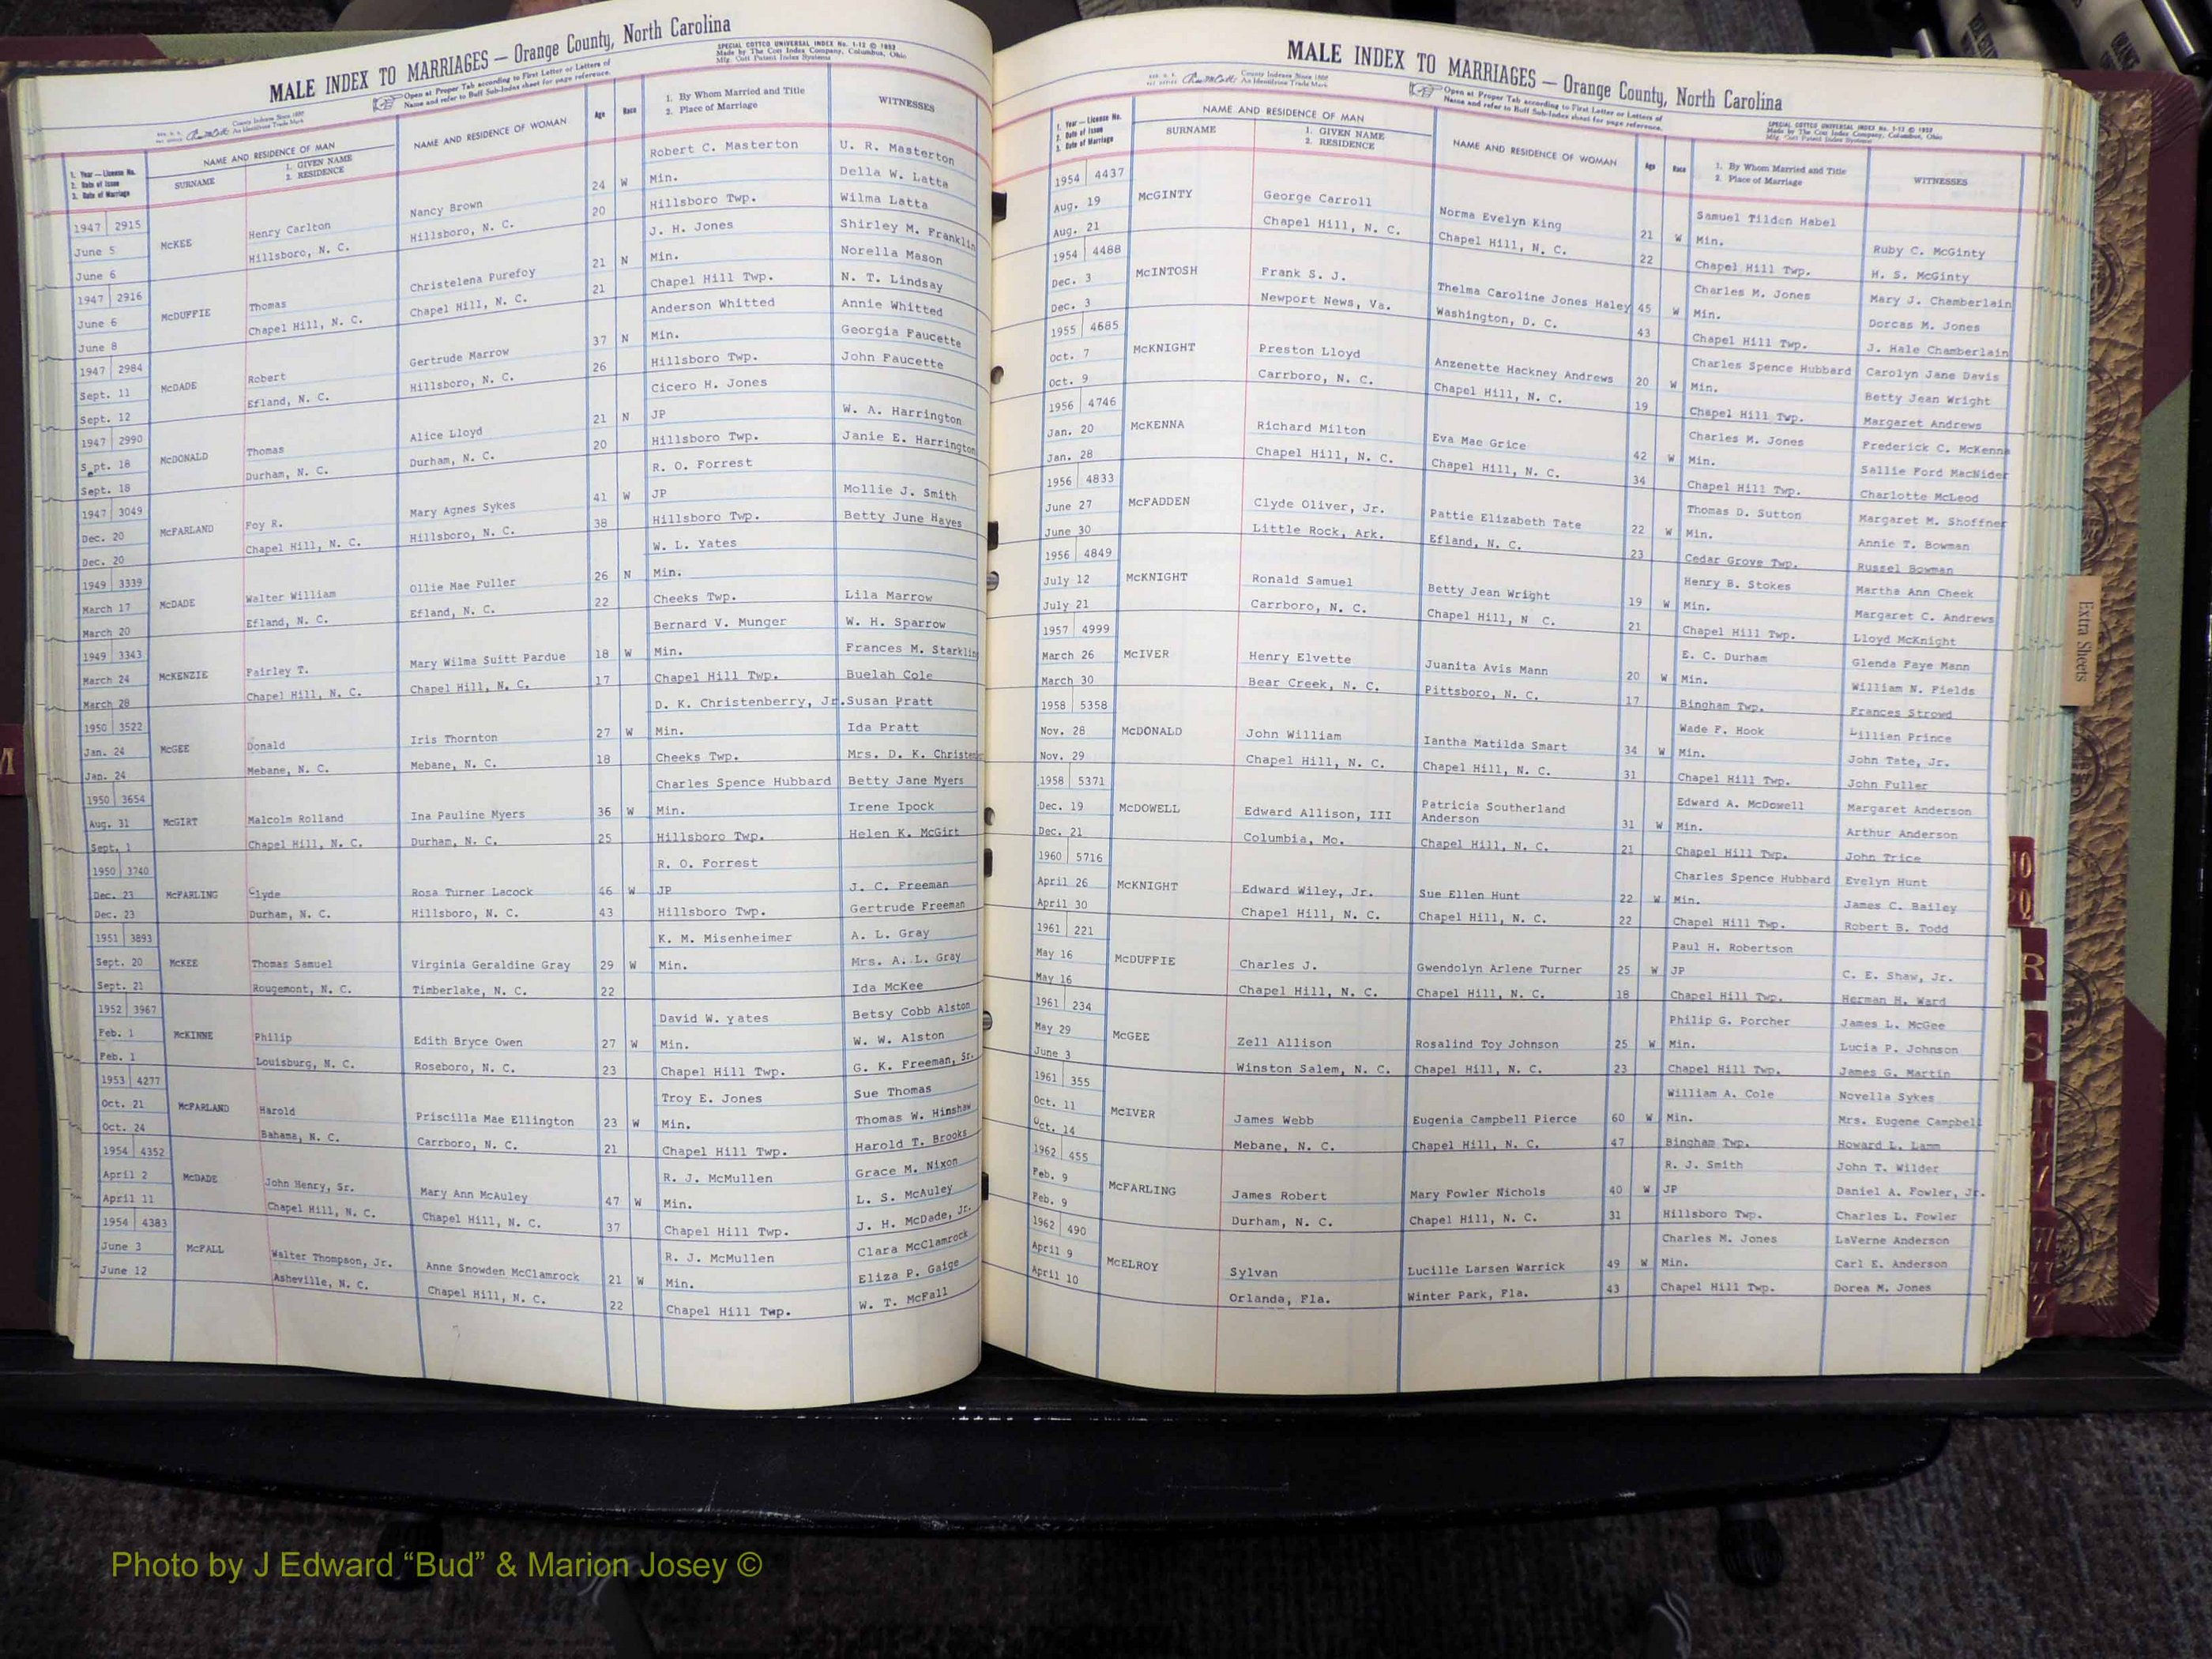 MALE INDEX TO MARRIAGES — Orange County, North Carolina
County Indexes Since 1888
An Identifying Trade Mark
Open at Proper Tab according to First Letter or Letters of
Name and refer to Buff Sub-Index sheet for page reference.
SPECIAL COTTCO UNIVERSAL INDEX No. 1-12 © 1953
Made by The Cott Index Company, Columbus, Ohio
Mfg. Cott Patent Index Systems
1. Year — License No.
2. Date of Issue
3. Date of Marriage
NAME AND RESIDENCE OF MAN
SURNAME
1. GIVEN NAME
2. RESIDENCE
NAME AND RESIDENCE OF WOMAN
Age
Race
1. By Whom Married and Title
2. Place of Marriage
WITNESSES
1947 2915 Robert C. Masterton U. R. Masterton
June 5 McKEE Henry Carlton Nancy Brown 24 W Min. Della W. Latta
June 6 Hillsboro, N. C. Hillsboro, N. C. 20 Hillsboro Twp. Wilma Latta
1947 2916 J. H. Jones Shirley M. Franklin
June 6 McDUFFIE Thomas Christelena Purefoy 21 N Min. Norella Mason
June 8 Chapel Hill, N. C. Chapel Hill, N. C. 21 Chapel Hill Twp. N. T. Lindsay
1947 2984 Anderson Whitted Annie Whitted
Sept. 11 McDADE Robert Gertrude Marrow 37 N Min. Georgia Faucette
Sept. 12 Efland, N. C. Hillsboro, N. C. 26 Hillsboro Twp. John Faucette
1947 2990 Cicero H. Jones
Sept. 18 McDONALD Thomas Alice Lloyd 21 N JP W. A. Harrington
Sept. 18 Durham, N. C. Durham, N. C. 20 Hillsboro Twp. Janie E. Harrington
1947 3049 R. O. Forrest
Dec. 20 McFARLAND Foy R. Mary Agnes Sykes 41 W JP Mollie J. Smith
Dec. 20 Chapel Hill, N. C. Hillsboro, N. C. 38 Hillsboro Twp. Betty June Hayes
1949 3339 W. L. Yates
March 17 McDADE Walter William Ollie Mae Fuller 26 N Min.
March 20 Efland, N. C. Efland, N. C. 22 Cheeks Twp. Lila Marrow
1949 3343 Bernard V. Munger W. H. Sparrow
March 24 McKENZIE Fairley T. Mary Wilma Suitt Pardue 18 W Min. Frances M. Starklin
March 28 Chapel Hill, N. C. Chapel Hill, N. C. 17 Chapel Hill Twp. Buelah Cole
1950 3522 D. K. Christenberry, Jr. Susan Pratt
Jan. 24 McGEE Donald Iris Thornton 27 W Min. Ida Pratt
Jan. 24 Mebane, N. C. Mebane, N. C. 18 Cheeks Twp. Mrs. D. K.
1950 3654 Charles Spence Hubbard Betty Jane Myers
Aug. 31 McGIRT Malcolm Rolland Ina Pauline Myers 36 W Min. Irene Ipock
Sept. 1 Chapel Hill, N. C. Durham, N. C. 25 Hillsboro Twp. Helen K. McGirt
1950 3740 R. O. Forrest
Dec. 23 McFARLING Clyde Rosa Turner Lacock 46 W JP J. C. Freeman
Dec. 23 Durham, N. C. Hillsboro, N. C. 43 Hillsboro Twp. Gertrude Freeman
1951 3893 K. M. Misenheimer A. L. Gray
Sept. 20 McKEE Thomas Samuel Virginia Geraldine Gray 29 W Min. Mrs. A. L. Gray
Sept. 21 Rougemont, N. C. Timberlake, N. C. 22 Ida McKee
1952 3967 David W. yates Betsy Cobb Alston
Feb. 1 McKINNE Philip Edith Bryce Owen 27 W Min. W. W. Alston
Feb. 1 Louisburg, N. C. Roseboro, N. C. 23 Chapel Hill Twp. G. K. Freeman, Sr.
1953 4277 Troy E. Jones Sue Thomas
Oct. 21 McFARLAND Harold Priscilla Mae Ellington 23 W Min. Thomas W. Hinshaw
Oct. 24 Bahama, N. C. Carrboro, N. C. 21 Chapel Hill Twp. Harold T. Brooks
1954 4352 R. J. McMullen Grace M. Nixon
April 2 McDADE John Henry, Sr. Mary Ann McAuley 47 W Min. L. S. McAuley
April 11 Chapel Hill, N. C. Chapel Hill, N. C. 37 Chapel Hill Twp. J. H. McDade, Jr.
1954 4383 R. J. McMullen Clara McClamrock
June 3 McFALL Walter Thompson, Jr. Anne Snowden McClamrock 21 W Min. Eliza P. Gaige
June 12 Asheville, N. C. Chapel Hill, N. C. 22 Chapel Hill Twp. W. T. McFall
MALE INDEX TO MARRIAGES — Orange County, North Carolina
County Indexes Since 1888
An Identifying Trade Mark
Open at Proper Tab according to First Letter or Letters of
Name and refer to Buff Sub-Index sheet for page reference.
SPECIAL COTTCO UNIVERSAL INDEX No. 1-12 © 1953
Made by The Cott Index Company, Columbus, Ohio
Mfg. Cott Patent Index Systems
1. Year — License No.
2. Date of Issue
3. Date of Marriage
NAME AND RESIDENCE OF MAN
SURNAME
1. GIVEN NAME
2. RESIDENCE
NAME AND RESIDENCE OF WOMAN
Age
Race
1. By Whom Married and Title
2. Place of Marriage
WITNESSES
1954 4437 Samuel Tilden Habel
Aug. 19 McGINTY George Carroll Norma Evelyn King 21 W Min. Ruby C. McGinty
Aug. 21 Chapel Hill, N. C. Chapel Hill, N. C. 22 Chapel Hill Twp. H. S. McGinty
1954 4488 Charles M. Jones Mary J. Chamberlain
Dec. 3 McINTOSH Frank S. J. Thelma Caroline Jones Haley 45 W Min. Dorcas M. Jones
Dec. 3 Newport News, Va. Washington, D. C. 43 Chapel Hill Twp. J. Hale Chamberlain
1955 4685 Charles Spence Hubbard Carolyn Jane Davis
Oct. 7 McKNIGHT Preston Lloyd Anzenette Hackney Andrews 20 W Min. Betty Jean Wright
Oct. 9 Carrboro, N. C. Chapel Hill, N. C. 19 Chapel Hill Twp. Margaret Andrews
1956 4746 Charles M. Jones Frederick C. McKenna
Jan. 20 McKENNA Richard Milton Eva Mae Grice 42 W Min. Sallie Ford MacNider
Jan. 28 Chapel Hill, N. C. Chapel Hill, N. C. 34 Chapel Hill Twp. Charlotte McLeod
1956 4833 Thomas D. Sutton Margaret M. Shoffner
June 27 McFADDEN Clyde Oliver, Jr. Pattie Elizabeth Tate 22 W Min. Annie T. Bowman
June 30 Little Rock, Ark. Efland, N. C. 23 Cedar Grove Twp. Russel Bowman
1956 4849 Henry B. Stokes Martha Ann Cheek
July 12 McKNIGHT Ronald Samuel Betty Jean Wright 19 W Min. Margaret C. Andrews
July 21 Carrboro, N. C. Chapel Hill, N C. 21 Chapel Hill Twp. Lloyd McKnight
1957 4999 E. C. Durham Glenda Faye Mann
March 26 McIVER Henry Elvette Juanita Avis Mann 20 W Min. William N. Fields
March 30 Bear Creek, N. C. Pittsboro, N. C. 17 Bingham Twp. Frances Strowd
1958 5358 Wade F. Hook Lillian Prince
Nov. 28 McDONALD John William Iantha Matilda Smart 34 W Min. John Tate, Jr.
Nov. 29 Chapel Hill, N. C. Chapel Hill, N. C. 31 Chapel Hill Twp. John Fuller
1958 5371 Edward A. McDowell Margaret Anderson
Dec. 19 McDOWELL Edward Allison, III Patricia Southerland Anderson 31 W Min. Arthur Anderson
Dec. 21 Columbia, Mo. Chapel Hill, N. C. 21 Chapel Hill Twp. John Trice
1960 5716 Charles Spence Hubbard Evelyn Hunt
April 26 McKNIGHT Edward Wiley, Jr. Sue Ellen Hunt 22 W Min. James C. Bailey
April 30 Chapel Hill, N. C. Chapel Hill, N. C. 22 Chapel Hill Twp. Robert B. Todd
1961 221 Paul H. Robertson
May 16 McDUFFIE Charles J. Gwendolyn Arlene Turner 25 W JP C. E. Shaw, Jr.
May 16 Chapel Hill, N. C. Chapel Hill, N. C. 18 Chapel Hill Twp. Herman H. Ward
1961 234 Philip G. Porcher James L. McGee
May 29 McGEE Zell Allison Rosalind Toy Johnson 25 W Min. Lucia P. Johnson
June 3 Winston Salem, N. C. Chapel Hill, N. C. 23 Chapel Hill Twp. James G. Martin
1961 355 William A. Cole Novella Sykes
Oct. 11 McIVER James Webb Eugenia Campbell Pierce 60 W Min. Mrs. Eugene Campbell
Oct. 14 Mebane, N. C. Chapel Hill, N. C. 47 Bingham Twp. Howard L. Lamm
1962 455 R. J. Smith John T. Wilder
Feb. 9 McFARLING James Robert Mary Fowler Nichols 40 W JP Daniel A. Fowler, Jr.
Feb. 9 Durham, N. C. Chapel Hill, N. C. 31 Hillsboro Twp. Charles L. Fowler
1962 490 Charles M. Jones LaVerne Anderson
April 9 McELROY Sylvan Lucille Larsen Warrick 49 W Min. Carl E. Anderson
April 10 Orlando, Fla. Winter Park, Fla. 43 Chapel Hill Twp. Dorea M. Jones
Extra Sheets
R
S
Photo by J Edward “Bud” & Marion Josey ©